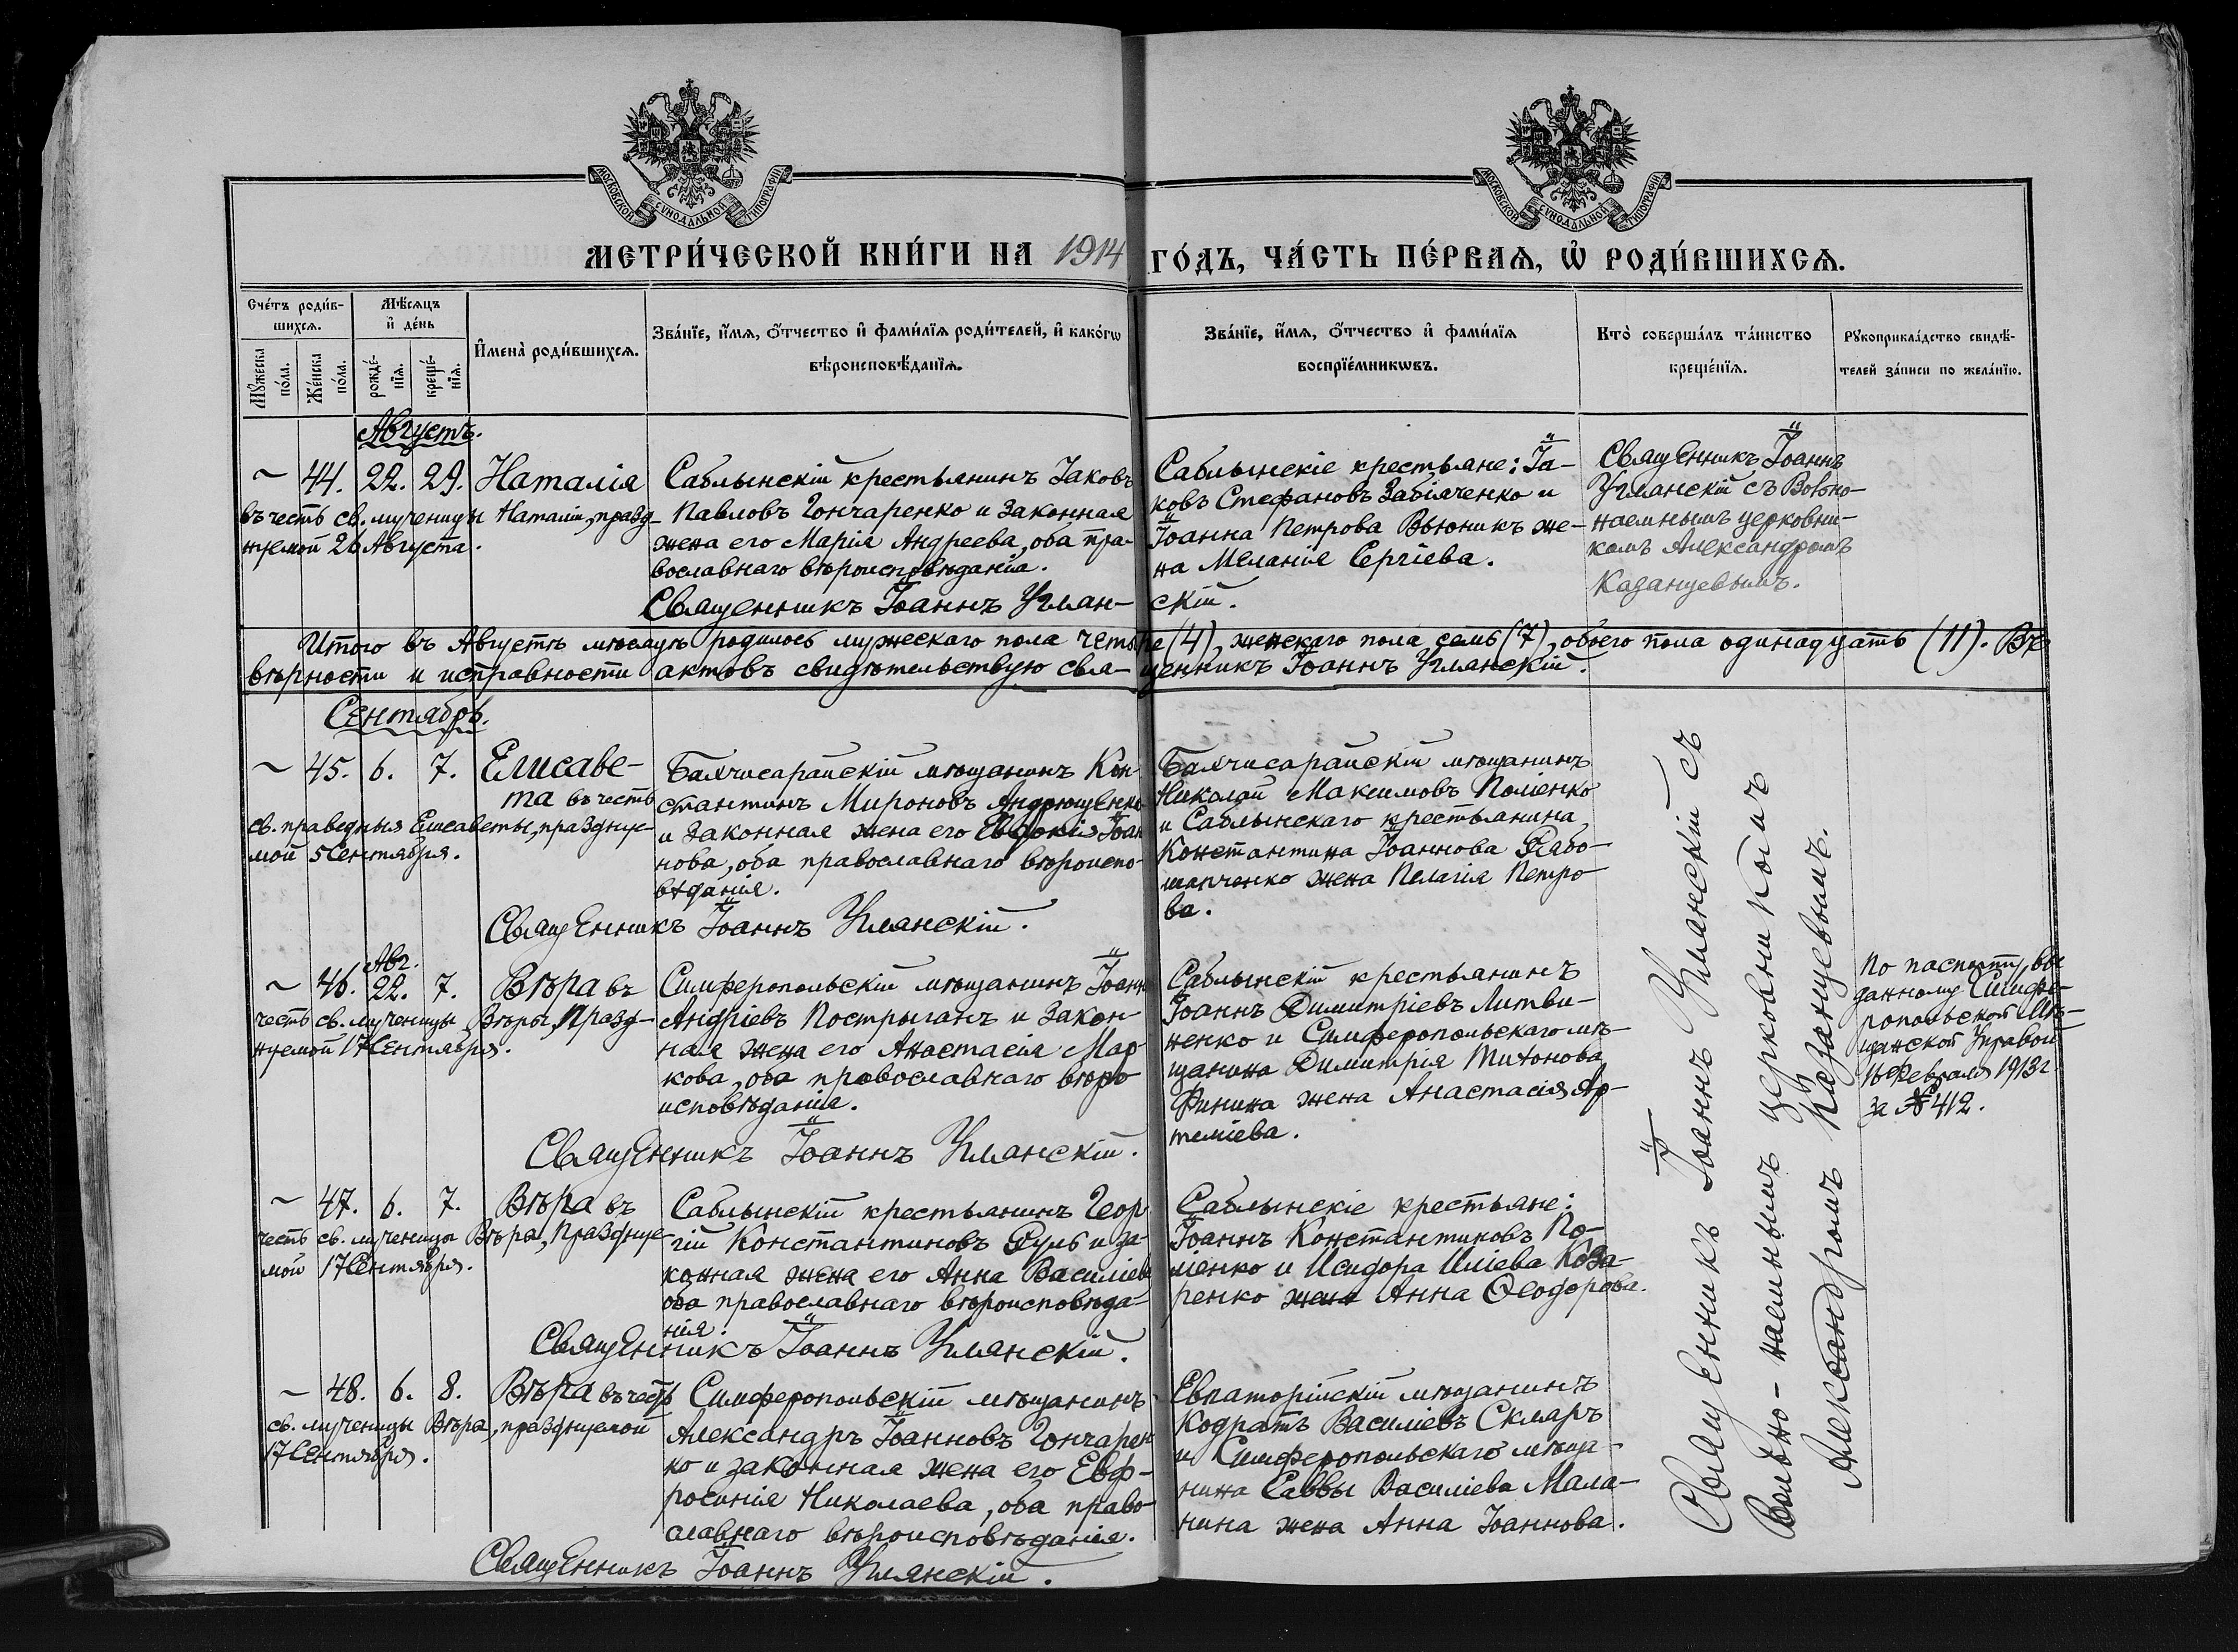 МОСКОВСКОЙ СѴНОДАЛЬНОЙ ТИПОГРАФІИ
МОСКОВСКОЙ СѴНОДАЛЬНОЙ ТИПОГРАФІИ
МЕТРИ́ЧЕСКОЙ КНИ́ГИ НА 1914 ГО́ДЪ, ЧА́СТЬ ПЕ́РВАѦ, Ѡ҆ РОДИ́ВШИХСѦ.
Сче́тъ роди́в-
шихсѧ.
Мѣ́сѧцъ
и҆ де́нь
Мꙋ́жеска
по́ла.
Же́нска
по́ла.
рожде́-
нїѧ.
креще́-
нїѧ.
И҆мена̀ роди́вшихсѧ.
Зва́нїе, и҆́мѧ, ѻ҆́тчество и҆ фами́лїѧ роди́телей, и҆ како́гѡ
вѣроисповѣ́данїѧ.
Зва́нїе, и҆́мѧ, ѻ҆́тчество и҆ фами́лїѧ
воспрїе́мникѡвъ.
Кто̀ соверша́лъ та́инство
креще́нїѧ.
Рꙋкоприкла́дство свидѣ́-
телей за́писи по жела́нїю.
Августъ.
~ 44. 22. 29. Наталія
въ честь св. мученицы Наталіи, празд-
нуемой 26 Августа.
Саблынскій крестьянинъ Іаковъ
Павловъ Гончаренко и законная
жена его Марія Андреева, оба пра-
вославнаго вѣроисповѣданія.
Священникъ Іоаннъ Углян-скій.
Саблынскіе крестьяне: Іа-
ковъ Стефановъ Забіяченко и
Іоанна Петрова Вьюникъ же-
на Меланія Сергіева.
Священникъ Іоаннъ
Углянскій съ Вольно-
наемнымъ церковни-
комъ Александромъ
Казанцевымъ.
Итого въ Августѣ мѣсяцѣ родилось мужескаго пола четыре (4), женскаго пола семь (7), обоего пола одинадцать (11). Въ
вѣрности и исправности актовъ свидѣтельствую свя-щенникъ Іоаннъ Углянскій.
Сентябрь.
~ 45. 6. 7. Елисаве-
та въ честь
св. праведныя Елисаветы, празднуе-
мой 5 Сентября.
Бахчисарайскій мѣщанинъ Кон-
стантинъ Мироновъ Андрющенко
и законная жена его Евдокія Іоан-
нова, оба православнаго вѣроиспо-
вѣданія.
Священникъ Іоаннъ Углянскій.
Бахчисарайскій мѣщанинъ
Николай Максимовъ Поліенко
и Саблынскаго крестьянина
Константина Іоаннова Рябо-
шапченко жена Пелагія Петро-
ва.
Авг.
~ 46. 22. 7. Вѣра въ
честь св. мученицы Вѣры, празд-
нуемой 17 Сентября.
Симферопольскій мѣщанинъ Іоаннъ
Андріевъ Построганъ и закон-
ная жена его Анастасія Мар-
кова, оба православнаго вѣро-
исповѣданія.
Священникъ Іоаннъ Углянскій.
Саблынскій крестьянинъ
Іоаннъ Димитріевъ Литви-
ненко и Симферопольскаго мѣ-
щанина Димитрія Тихонова
Финина жена Анастасія Ар-
теміева.
По паспорту, вы-
данному Симфе-
ропольской Мѣ-
щанской Управой
16 Февраля 1913 г
за № 412.
~ 47. 6. 7. Вѣра въ
честь св. мученицы Вѣры, празднуе-
мой 17 Сентября.
Саблынскій крестьянинъ Геор-
гій Константиновъ Руль и за-
конная жена его Анна Василіева
оба православнаго вѣроисповѣда-
нія.
Священникъ Іоаннъ Углянскій.
Саблынскіе крестьяне:
Іоаннъ Константиновъ По-
ліенко и Исидора Иліева Коза-
ренко жена Анна Ѳеодорова.
~ 48. 6. 8. Вѣра въ честь
св. мученицы Вѣры, празднуемой
17 Сентября.
Симферопольскій мѣщанинъ
Александръ Іоанновъ Гончарен-
ко и законная жена его Евф-
росинія Николаева, оба право-
славнаго вѣроисповѣданія.
Священникъ Іоаннъ Углянскій.
Евпаторійскій мѣщанинъ
Кодратъ Василіевъ Скляръ
и Симферопольскаго мѣща-
нина Саввы Василіева Мала-
нина жена Анна Іоаннова.
Священникъ Іоаннъ Углянскій съ
Вольно-наемнымъ церковникомъ
Александромъ Казанцевымъ.